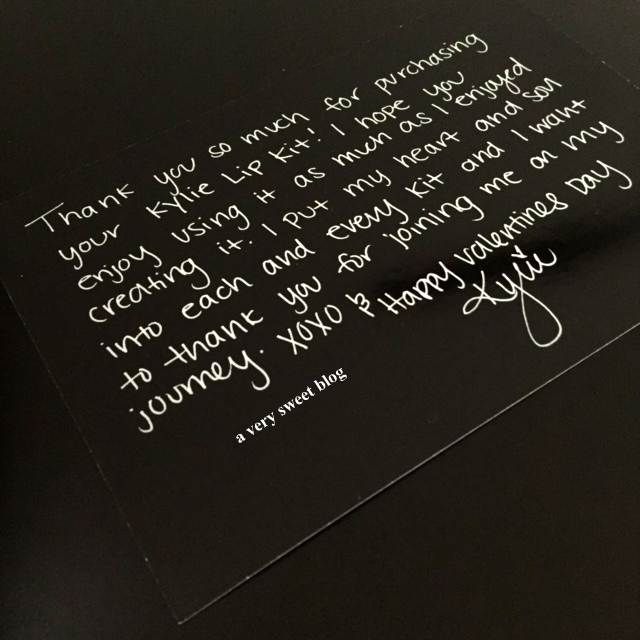 Thank you so much for purchasing
your Kylie Lip Kit! I hope you
enjoy using it as much as I enjoyed
creating it. I put my heart and soul
into each and every kit and I want
to thank you for joining me on my
journey. XOXO & Happy Valentines Day
Kylie
a very sweet blog